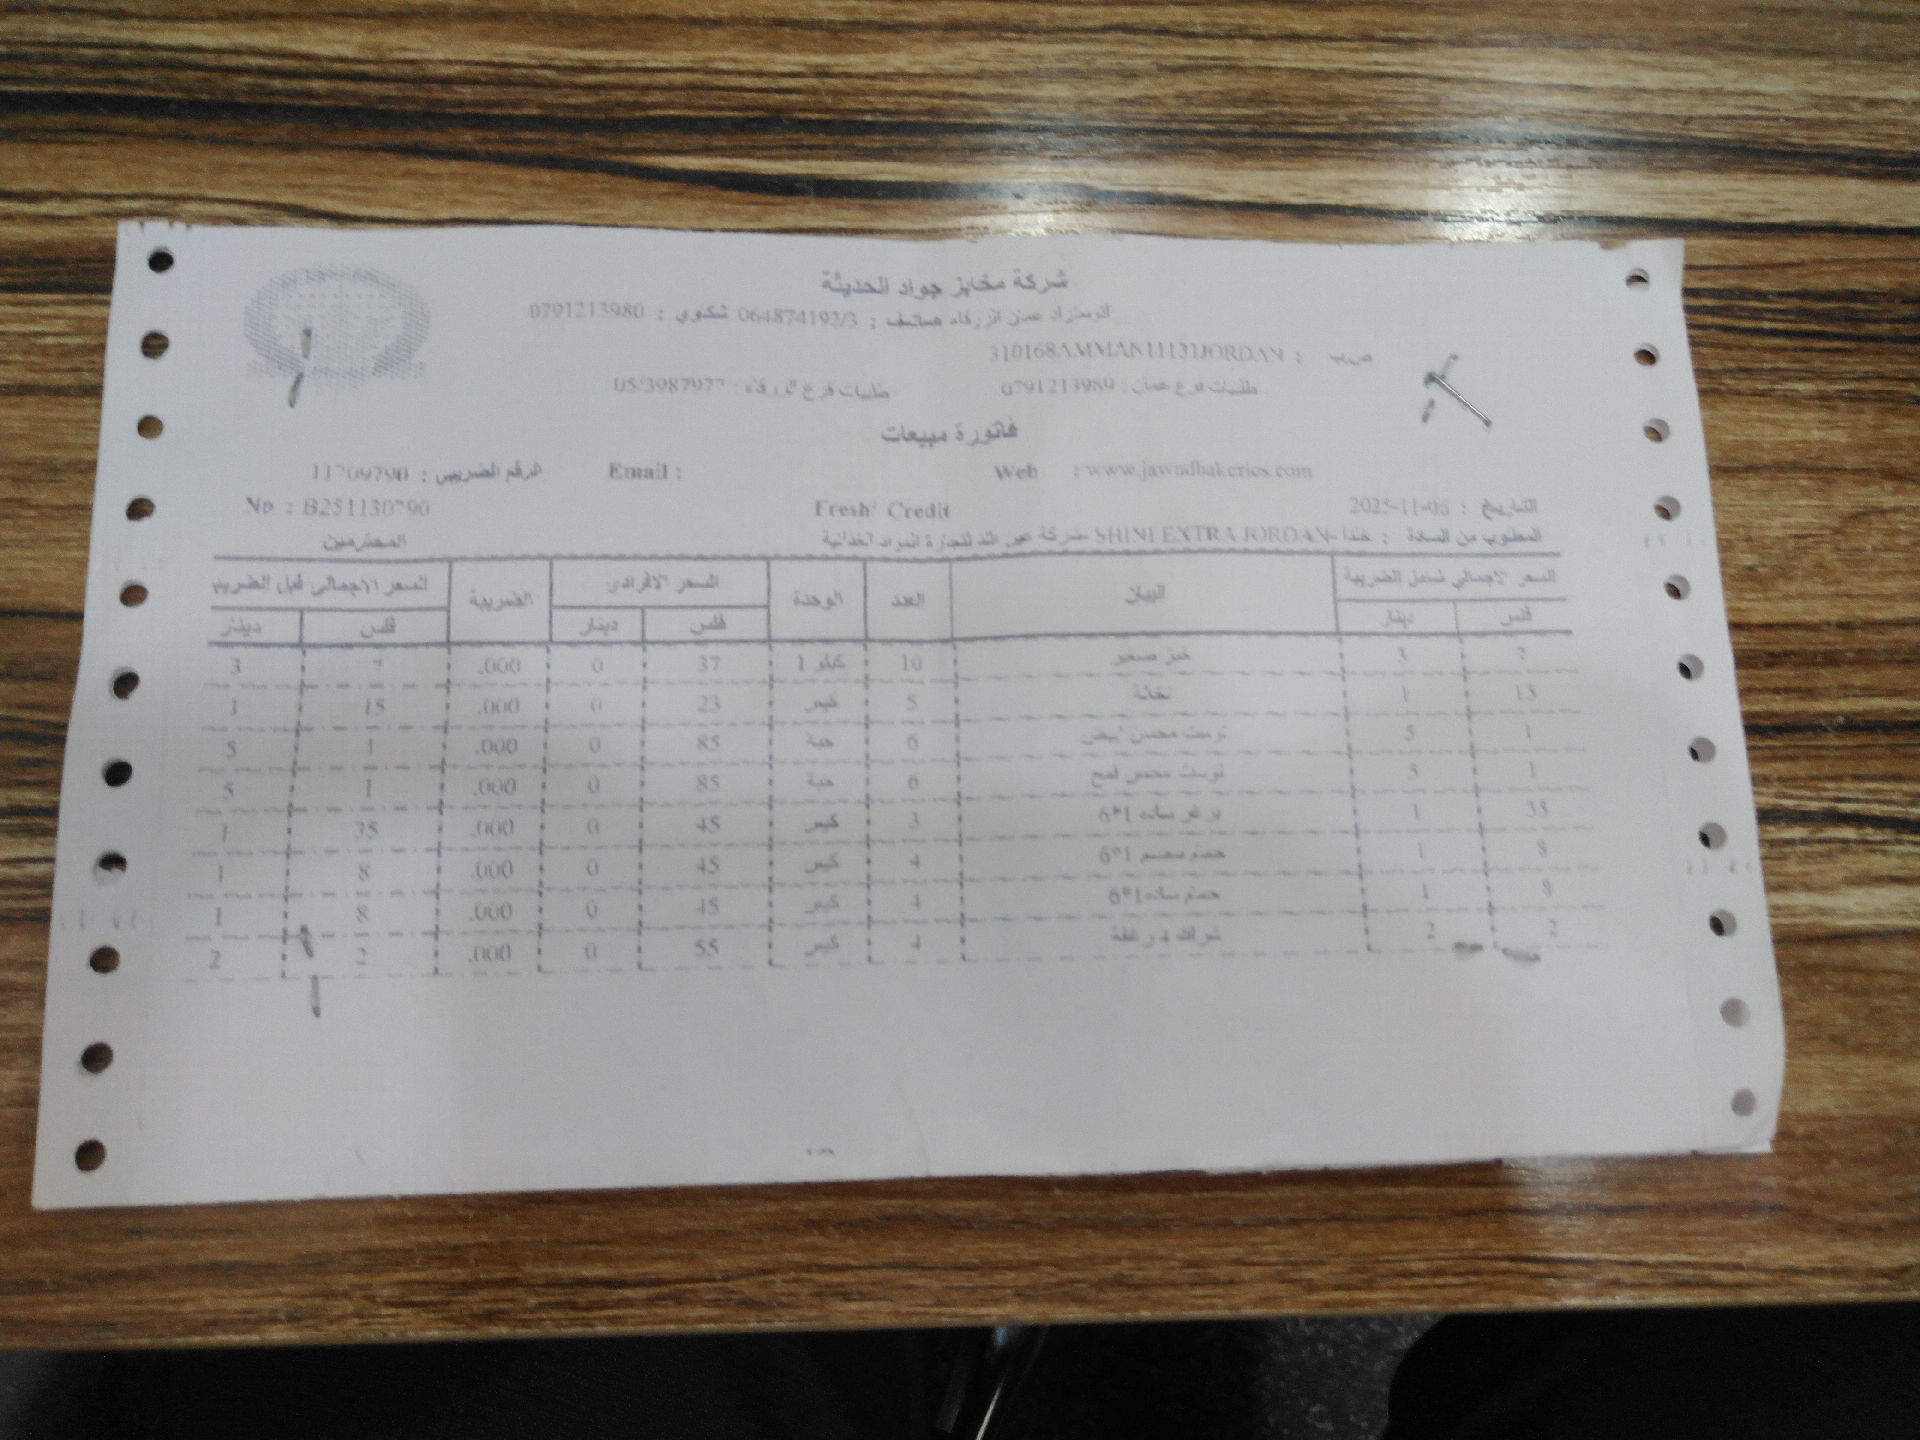 شركة مخابز جواد الحديثة
عمان الزرقاء هاتف : 064874192/3 شكاوي : 0791213980
ص.ب : 310168AMMAN11131JORDAN
طلبيات فرع عمان : 0791213989 طلبيات فرع الزرقاء : 05/3987977
فاتورة مبيعات
Web : www.jawadbakeries.com Email : الرقم الضريبي : 11709790
التاريخ : 2025-11-06 Fresh' Credit No : B251130790
المطلوب من السادة : SHINI EXTRA JORDAN- شركة لتجارة المواد الغذائية المحترمين
السعر الاجمالي شامل الضريبة البيان العدد الوحدة السعر الافرادي الضريبة السعر الاجمالي قبل الضريبة
فلس دينار فلس دينار فلس دينار
7 3 خبز صغير 10 كيلو 1 37 0 .000 7 3
15 1 نخالة 5 كيس 23 0 .000 15 1
1 5 توست محسن ابيض 6 حبة 85 0 .000 1 5
1 5 توست محسن قمح 6 حبة 85 0 .000 1 5
35 1 برغر ساده 1*6 3 كيس 45 0 .000 35 1
8 1 حمام سمسم 1*6 4 كيس 45 0 .000 8 1
8 1 حمام ساده 1*6 4 كيس 45 0 .000 8 1
2 2 شراك 4 رغفة 4 كيس 55 0 .000 2 2